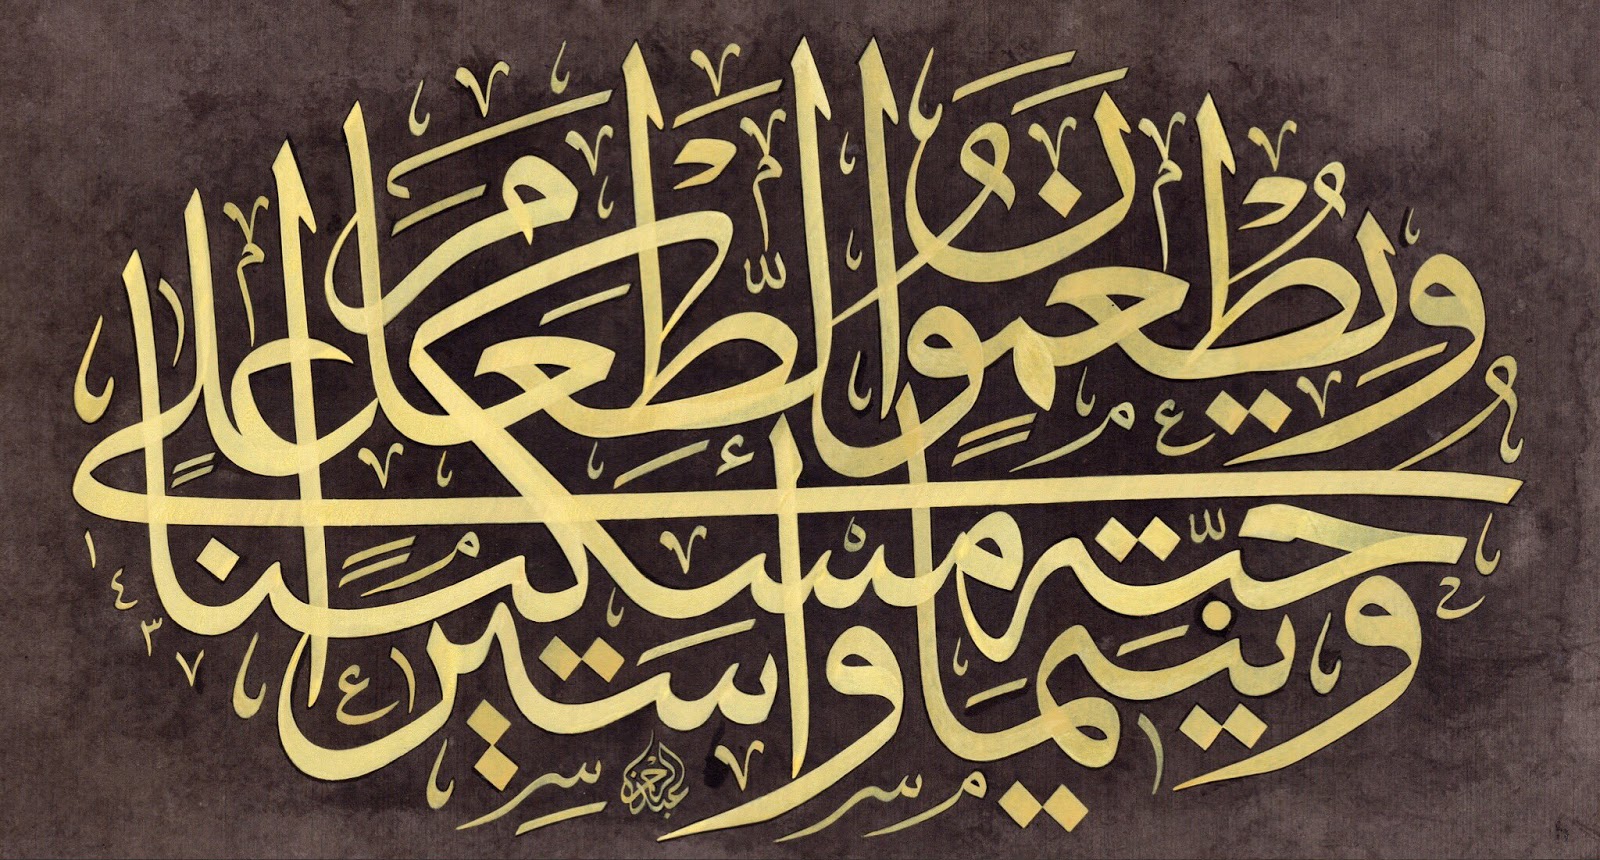 وَيُطْعِمُونَ الطَّعَامَ عَلَى
حُبِّهِ مِسْكِينًا وَيَتِيمًا وَأَسِيرًا
١٤٣٧